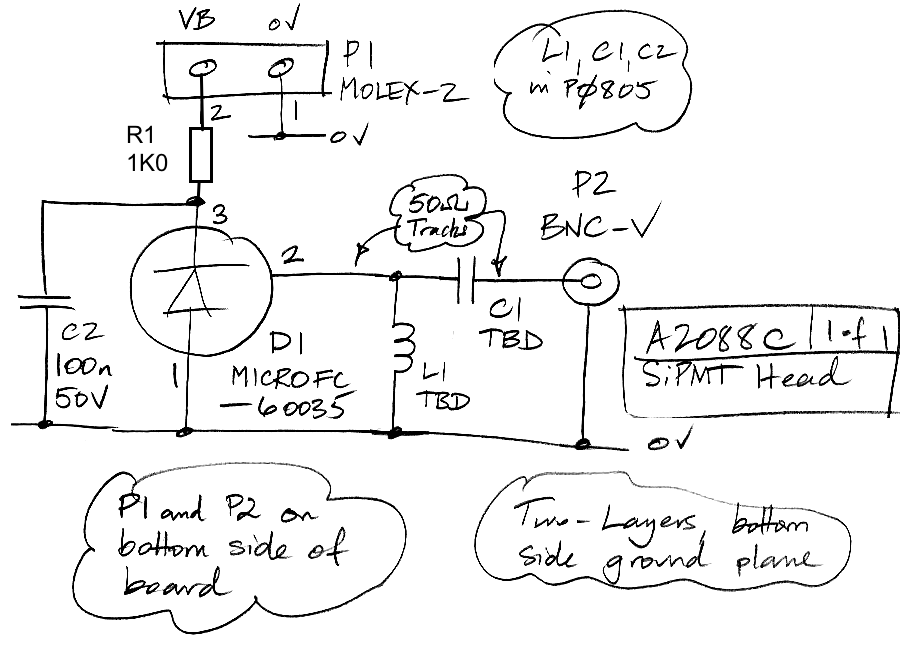 VB 0V
P1
MOLEX-2
2 1
0V
R1
1K0
3
L1, C1, C2
in PØ805
50Ω
Tracks
P2
BNC-V
2
C1
TBD
C2
100n
50V
1
D1
MICROFC
-60035
L1
TBD
A2088C 1 of 1
SiPMT Head
0V
P1 and P2 on
bottom side of
board
Two-Layers, bottom
side ground plane